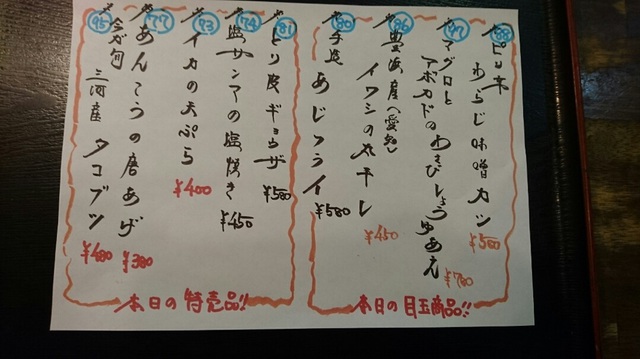 88
ピリ辛
わらじ味噌カツ
¥580
87
マグロと
アボカドのわさびしょうゆあえ
¥780
86
豊浜産(愛知)
イワシの丸干し
¥450
80
手造り
あじフライ
¥580
本日の目玉商品!!
81
とり皮ギョウザ
¥580
74
塩サンマの塩焼き
¥450
73
イカの天ぷら
¥400
77
あんこうの唐あげ
¥380
95
今が旬
三河産タコブツ
¥480
本日の特売品!!